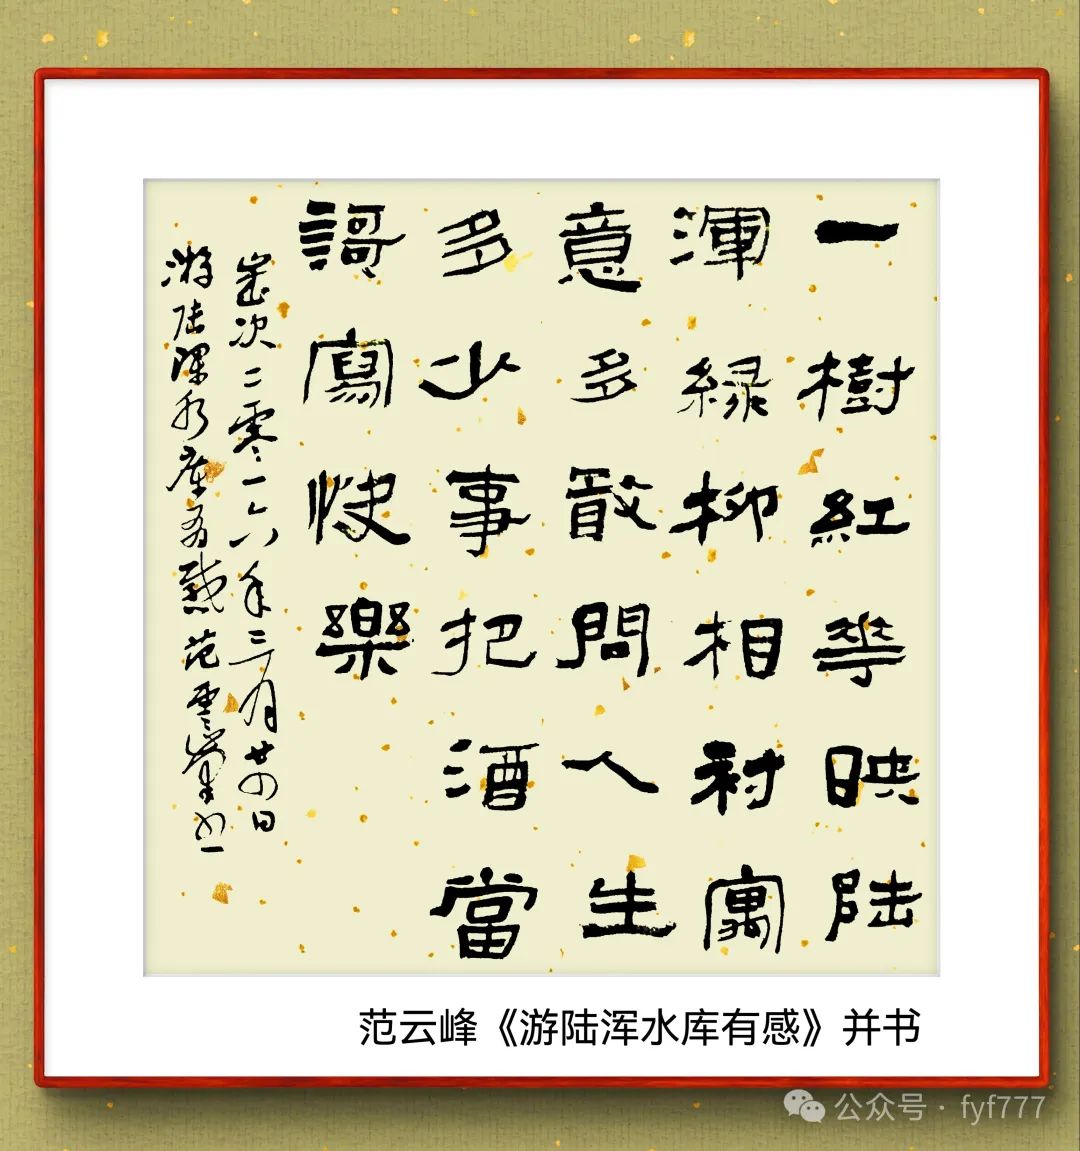 一樹紅花映陸
渾緑柳相衬寓
意多敢問人生
多少事把酒當
謌寫快樂
歲次二零一六年三月廿四日
游陆渾水库有感范雲峰书
范云峰《游陆浑水库有感》并书
公众号·fyf777